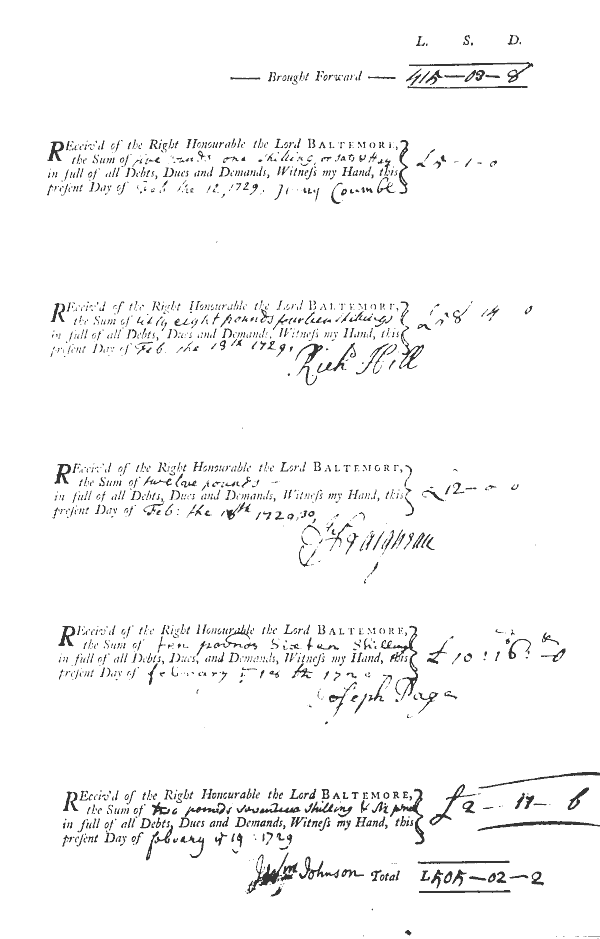 L. S. D.
Brought Forward 415—03—8
REceiv'd of the Right Honourable the Lord BALTEMORE,
the Sum of five pounds one shilling, or £5—1—0
in full of all Debts, Dues and Demands, Witneſs my Hand, this
preſent Day of Feb. the 12, 1729.
REceiv'd of the Right Honourable the Lord BALTEMORE,
the Sum of fifty eight pounds fourteen shillings £58 14 0
in full of all Debts, Dues and Demands, Witneſs my Hand, this
preſent Day of Feb. the 18th 1729.
Richd Hill
REceiv'd of the Right Honourable the Lord BALTEMORE,
the Sum of twelve pounds — £12—0 0
in full of all Debts, Dues and Demands, Witneſs my Hand, this
preſent Day of Feb: the 18th 1729,30,
REceiv'd of the Right Honourable the Lord BALTEMORE,
the Sum of ten pounds Sixteen Shillings £10:16:—0
in full of all Debts, Dues, and Demands, Witneſs my Hand, this
preſent Day of february
Joseph Page
REceiv'd of the Right Honourable the Lord BALTEMORE,
the Sum of two pounds seventeen shilling & Six pence £2—17—6
in full of all Debts, Dues and Demands, Witneſs my Hand, this
preſent Day of febuary ye 19: 1729
Wm Johnson Total L505—02—2